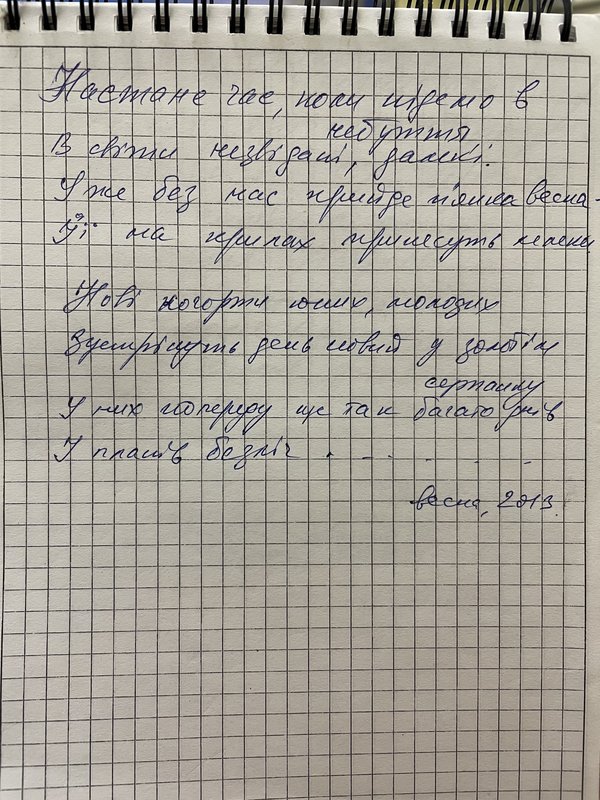 Настане час, коли підемо в
небуття
В світи незвідані, далекі.
Уже без нас прийде п'янка весна -
Її на крилах принесуть лелеки
Нові когорти юних, молодих
Зустрінуть день новий у золотім
серпанку
У них попереду ще так багато днів
І планів безліч . – – . . –
весна, 2013.